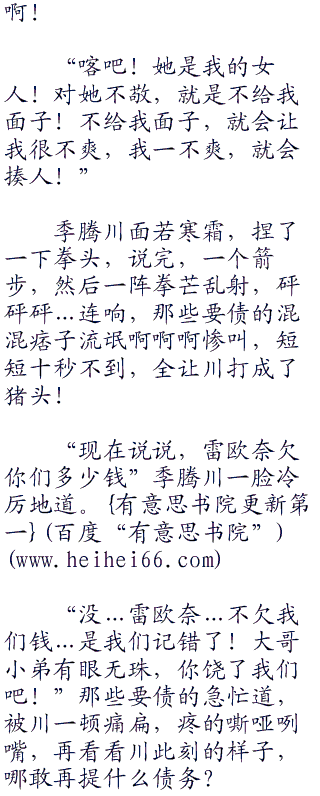 啊！
“喀吧！她是我的女
人！对她不敬，就是不给我
面子！不给我面子，就会让
我很不爽，我一不爽，就会
揍人！”
季腾川面若寒霜，捏了
一下拳头，说完，一个箭
步，然后一阵拳芒乱射，砰
砰砰…连响，那些要债的混
混痞子流氓啊啊啊惨叫，短
短十秒不到，全让川打成了
猪头！
“现在说说，雷欧奈欠
你们多少钱”季腾川一脸冷
厉地道。{有意思书院更新第
一}(百度“有意思书院”)
(www.heihei66.com)
“没…雷欧奈…不欠我
们钱…是我们记错了！大哥
小弟有眼无珠，你饶了我们
吧！”那些要债的急忙道，
被川一顿痛扁，疼的嘶哑咧
嘴，再看看川此刻的样子，
哪敢再提什么债务？